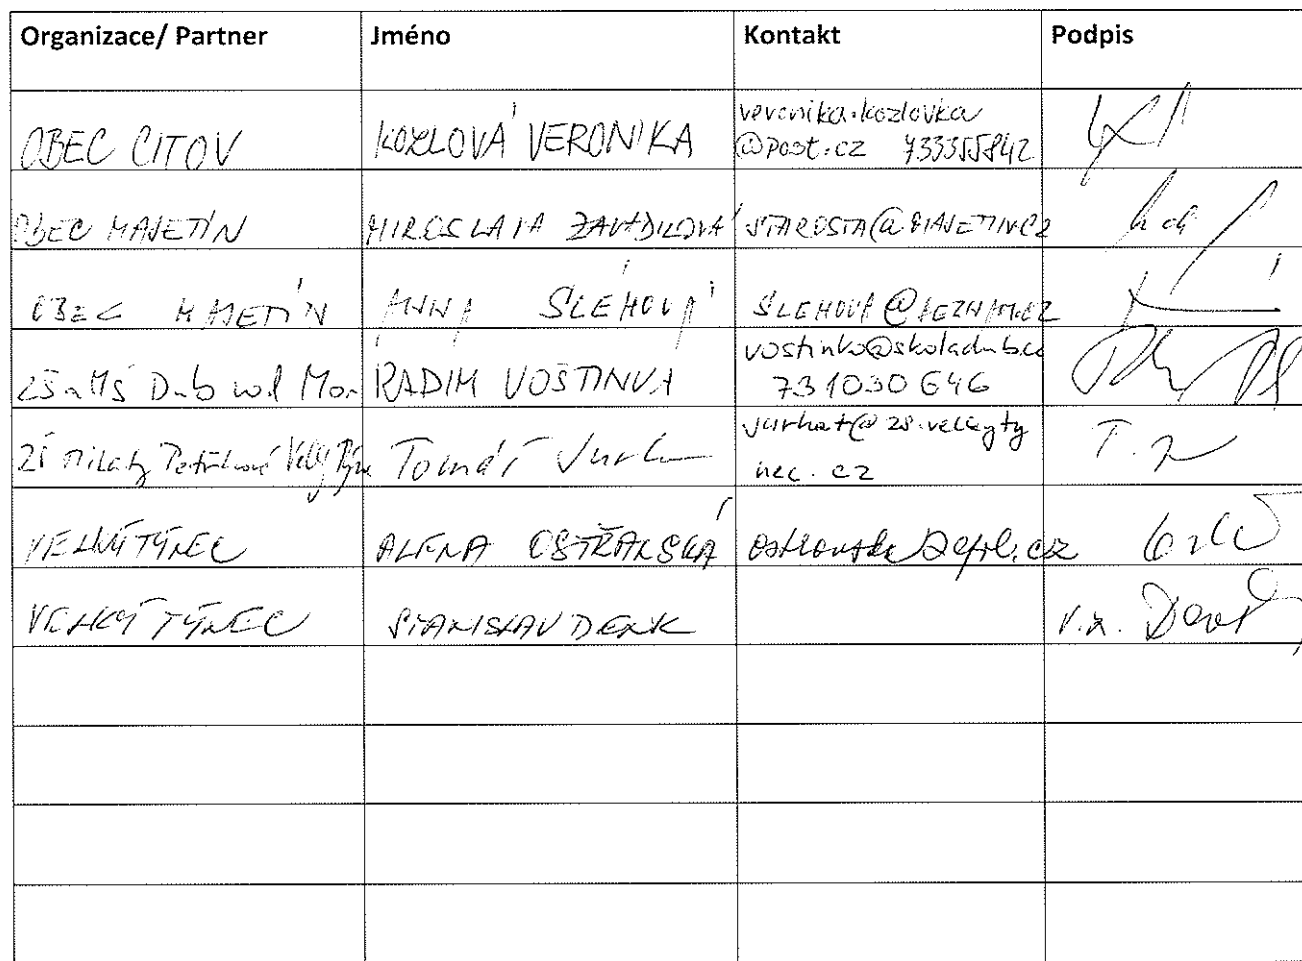 Organizace/ Partner Jméno Kontakt Podpis
OBEC CITOV KOZLOVÁ VERONIKA veronika.kozlovka
@post.cz 733355842
OBEC MAJETÍN MIROSLAVA ZAVADILOVÁ STAROSTA@MAJETIN.CZ
OBEC MAJETÍN ANNA ŠLÉHOVÁ SLEHOVA@SEZNAM.CZ
ZŠ a MŠ Dub nad Mor. RADIM VOŠTINKA vostinka@skoladub.cz
731030646
ZŠ Milady Petřkové Velký Týnec Tomáš
nec.cz
VELKÝ TÝNEC ALENA
VELKÝ TÝNEC STANISLAV DENK